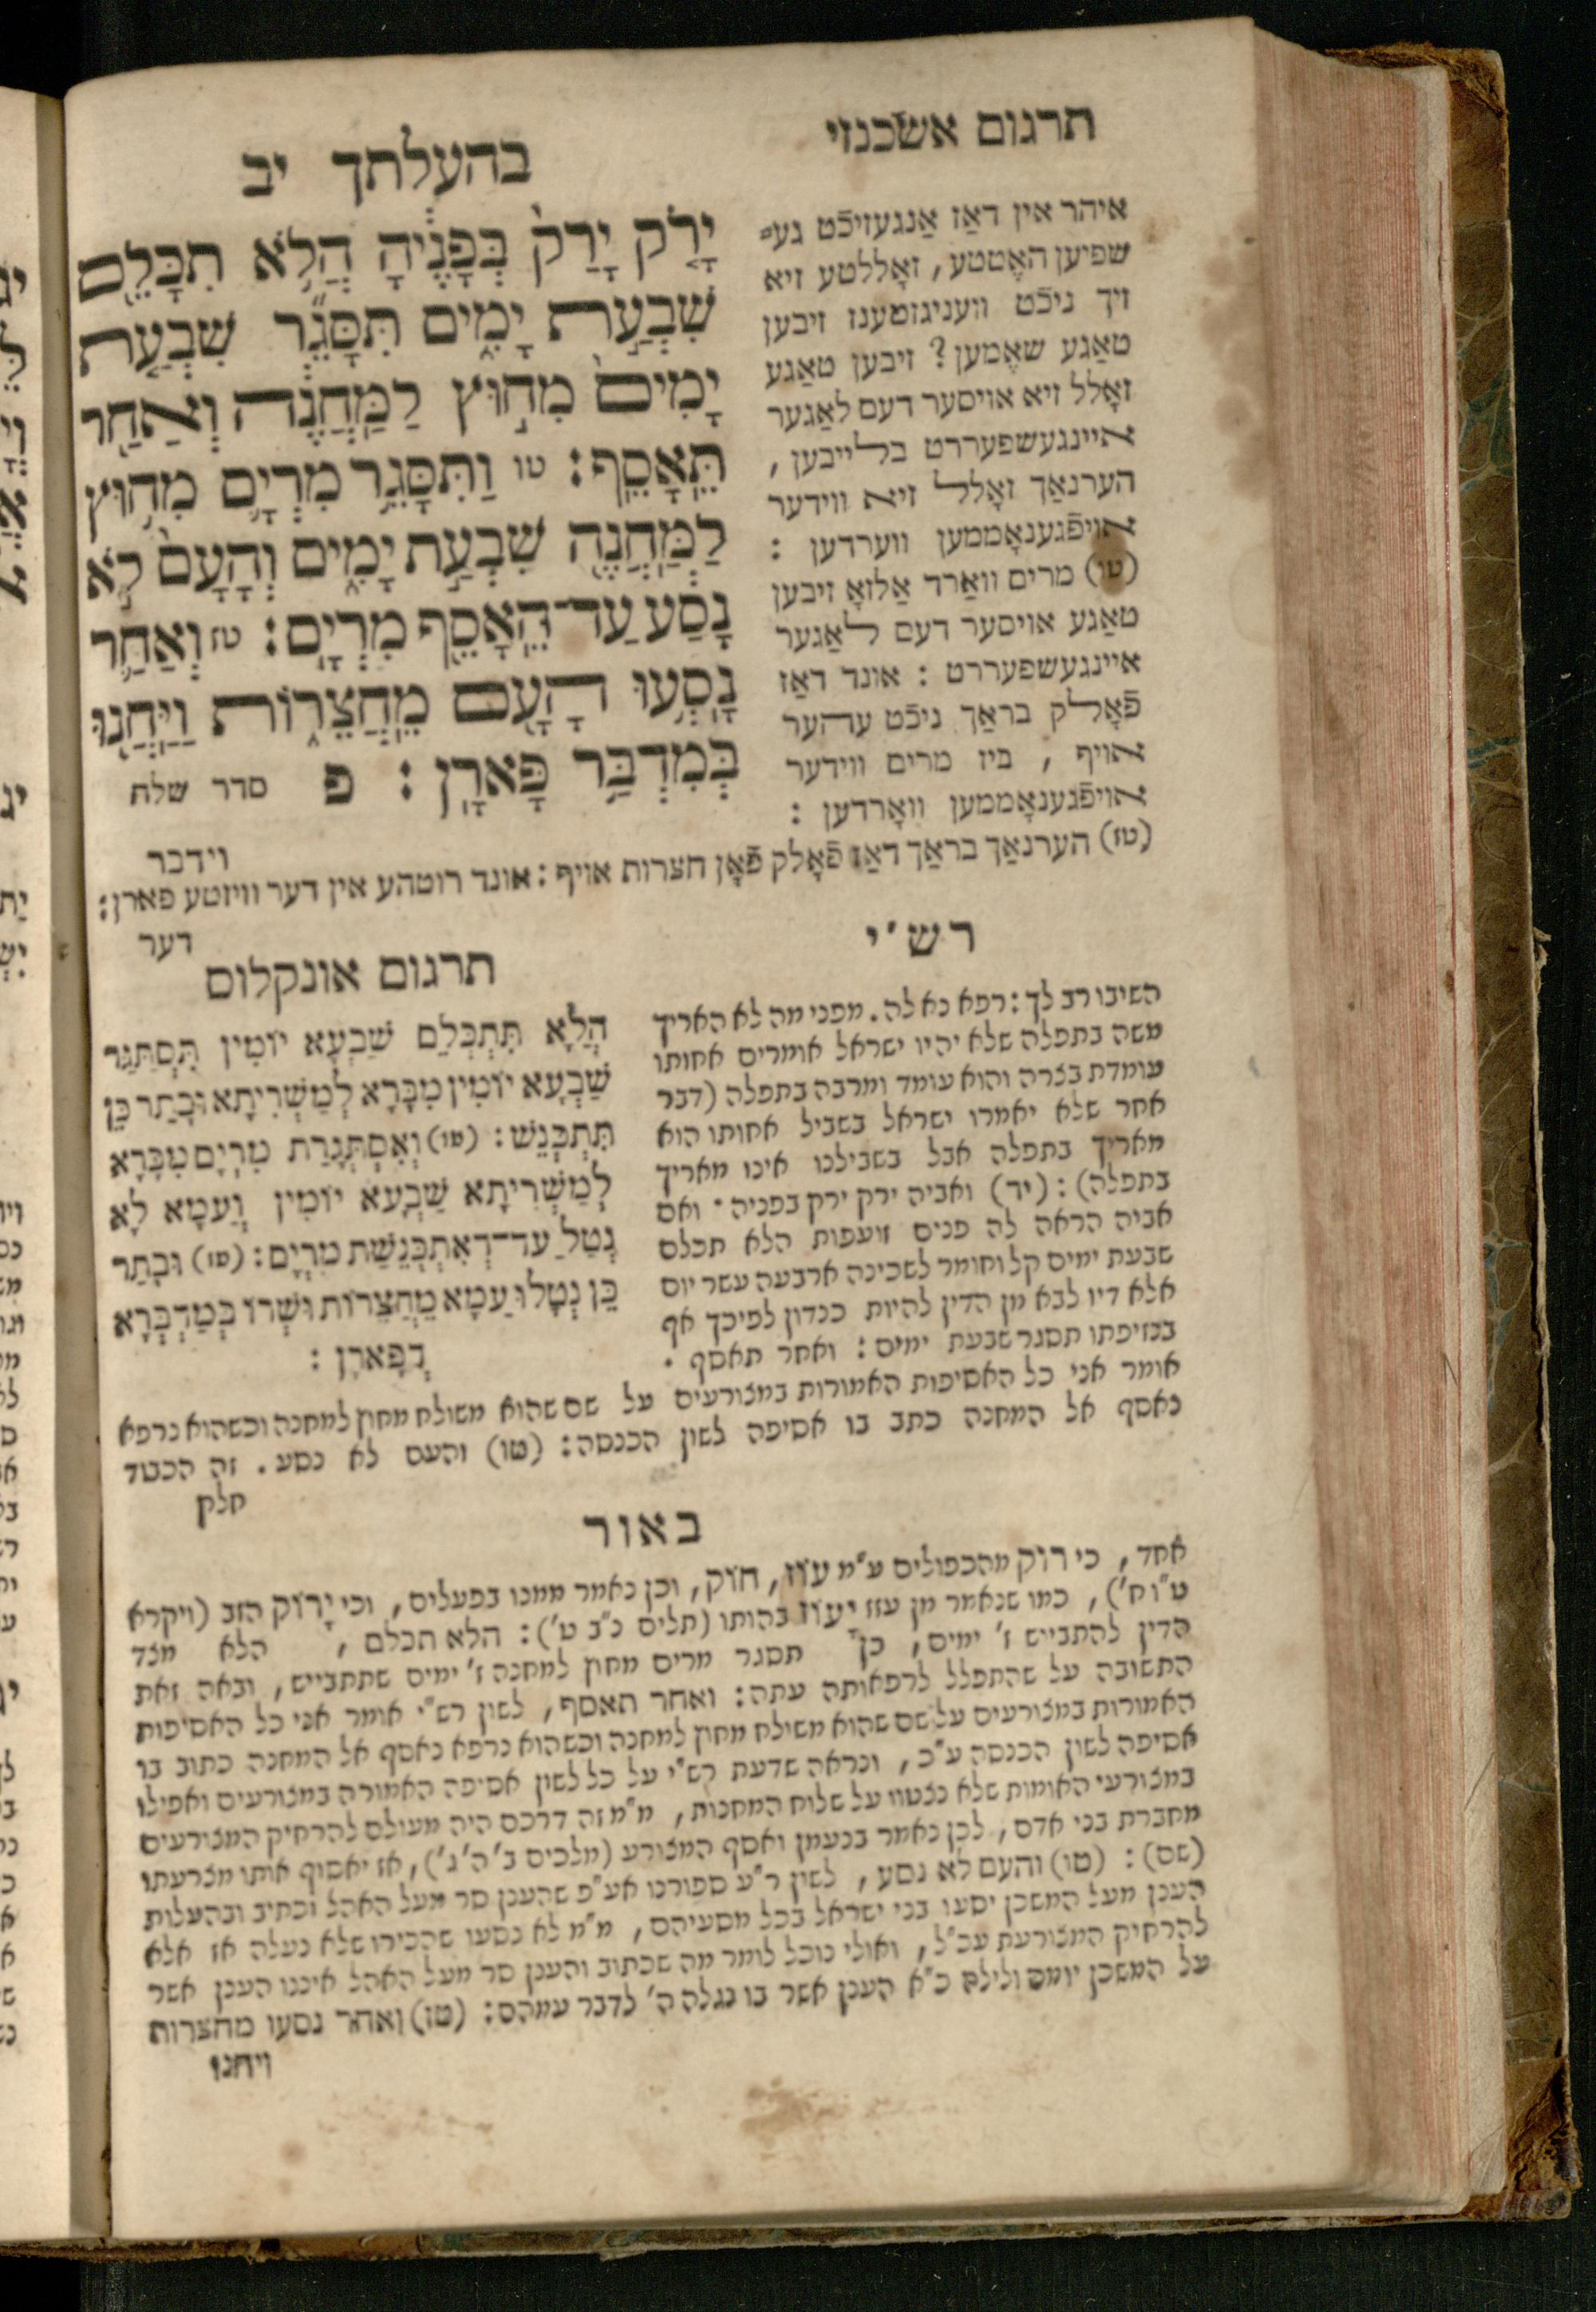 תרגום אשכנזי
בהעלתך יב
איהר אין דאַז אַנגעזיכֿט גע⸗
שפיען האָטטע, זאָללטע זיא
זיך ניכֿט וועניגזטענז זיבען
טאַגע שאֶמען? זיבען טאַגע
זאָלל זיא אויסער דעם לאַגער
איינגעשפעררט בלייבען,
הערנאַך זאָלל זיא ווידער
אויפֿגענאָממען ווערדען:
(טו) מרים וואַרד אַלזאָ זיבען
טאַגע אויסער דעם לאַגער
איינגעשפעררט: אונד דאַז
פֿאָלק בראַך ניכֿט עהער
אויף, ביז מרים ווידער
אויפֿגענאָממען וואָרדען:
(טז) הערנאַך בראַך דאַז פֿאָלק פֿאָן חצרות אויף: אונד רוטהע אין דער וויזטע פארן:
דער
יָרֹ֤ק יָרַק֙ בְּפָנֶ֔יהָ הֲלֹ֥א תִכָּלֵ֖ם
שִׁבְעַ֣ת יָמִ֑ים תִּסָּגֵ֞ר שִׁבְעַ֤ת
יָמִים֙ מִח֣וּץ לַֽמַּחֲנֶ֔ה וְאַחַ֖ר
תֵּאָסֵֽף: טו וַתִּסָּגֵ֥ר מִרְיָ֛ם מִח֥וּץ
לַֽמַּחֲנֶ֖ה שִׁבְעַ֣ת יָמִ֑ים וְהָעָם֙ לֹ֣א
נָסַ֔ע עַד־הֵאָסֵ֖ף מִרְיָֽם: טז וְאַחַ֛ר
נָסְע֥וּ הָעָ֖ם מֵחֲצֵר֑וֹת וַֽיַּחֲנ֖וּ
בְּמִדְבַּ֥ר פָּארָֽן: פ סדר שלח
וידבר
רש"י
השיבו רב לך: רפא נא לה. מפני מה לא האריך
משה בתפלה שלא יהיו ישראל אומרים אחותו
עומדת בצרה והוא עומד ומרבה בתפלה (דבר
אחר שלא יאמרו ישראל בשביל אחותו הוא
מאריך בתפלה אבל בשבילנו אינו מאריך
בתפלה): (יד) ואביה ירק ירק בפניה. ואם
אביה הראה לה פנים זועפות הלא תכלם
שבעת ימים קל וחומר לשכינה ארבעה עשר יום
אלא דיו לבא מן הדין להיות כנדון לפיכך אף
בנזיפתו תסגר שבעת ימים: ואחר תאסף.
אומר אני כל האסיפות האמורות במצורעים על שם שהוא משולח מחוץ למחנה וכשהוא נרפא
נאסף אל המחנה כתב בו אסיפה לשון הכנסה: (טו) והעם לא נסע. זה הכבוד
חלק
תרגום אונקלוס
הֲלָא תִּתְכְּלֵם שַׁבְעָא יוֹמִין תִּסְתַּגַּר
שַׁבְעָא יוֹמִין מִבָּרָא לְמַשְׁרִיתָא וּבָתַר כֵּן
תִּתְכְּנֵשׁ: (טו) וְאִסְתְּגָרַת מִרְיָם מִבָּרָא
לְמַשְׁרִיתָא שַׁבְעָא יוֹמִין וְעַמָא לָא
נְטַל עַד־דְאִתְכְּנֵשַׁת מִרְיָם: (טז) וּבָתַר
כֵּן נְטָלוּ עַמָא מֵחֲצֵרוֹת וּשְׁרוֹ בְּמַדְבְּרָא
דְפָארָן:
באור
אחד, כי רוֹק מהכפולים ע"מ עוֹז, חוֹק, וכן נאמר ממנו בפעלים, וכי יָרוֹק הזב (ויקרא
ט"ו ח'), כמו שנאמר מן עזז יָעוֹז בהותו (תלים נ"ב ט'): הלא תכלם, הלא מצד
הדין להתבייש ז' ימים, כן תסגר מרים מחוץ למחנה ז' ימים שתתבייש, ובאה זאת
התשובה על שהתפלל לרפאותה עתה: ואחר תאסף, לשון רש"י אומר אני כל האסיפות
האמורות במצורעים על שם שהוא משולח מחוץ למחנה וכשהוא נרפא נאסף אל המחנה כתוב בו
אסיפה לשון הכנסה ע"כ, ונראה שדעת רש"י על כל לשון אסיפה האמורה במצורעים ואפילו
במצורעי האומות שלא נצטוו על שלוח המחנות, מ"מ זה דרכם היה מעולם להרחיק המצורעים
מחברת בני אדם, לכן נאמר בנעמן ואסף המצורע (מלכים ב' ה' ג'), אז יאסוף אותו מצרעתו
(שם): (טו) והעם לא נסע, לשון ר"ע ספורנו אע"פ שהענן סר מעל האהל וכתיב ובהעלות
הענן מעל המשכן יסעו בני ישראל בכל מסעיהם, מ"מ לא נסעו שהכירו שלא נעלה אז אלא
להרחיק המצורעת עכ"ל, ואולי נוכל לומר מה שכתוב והענן סר מעל האהל איננו הענן אשר
על המשכן יומם ולילה כ"א הענן אשר בו נגלה ה' לדבר עמהם: (טז) ואחר נסעו מחצרות
ויחנו